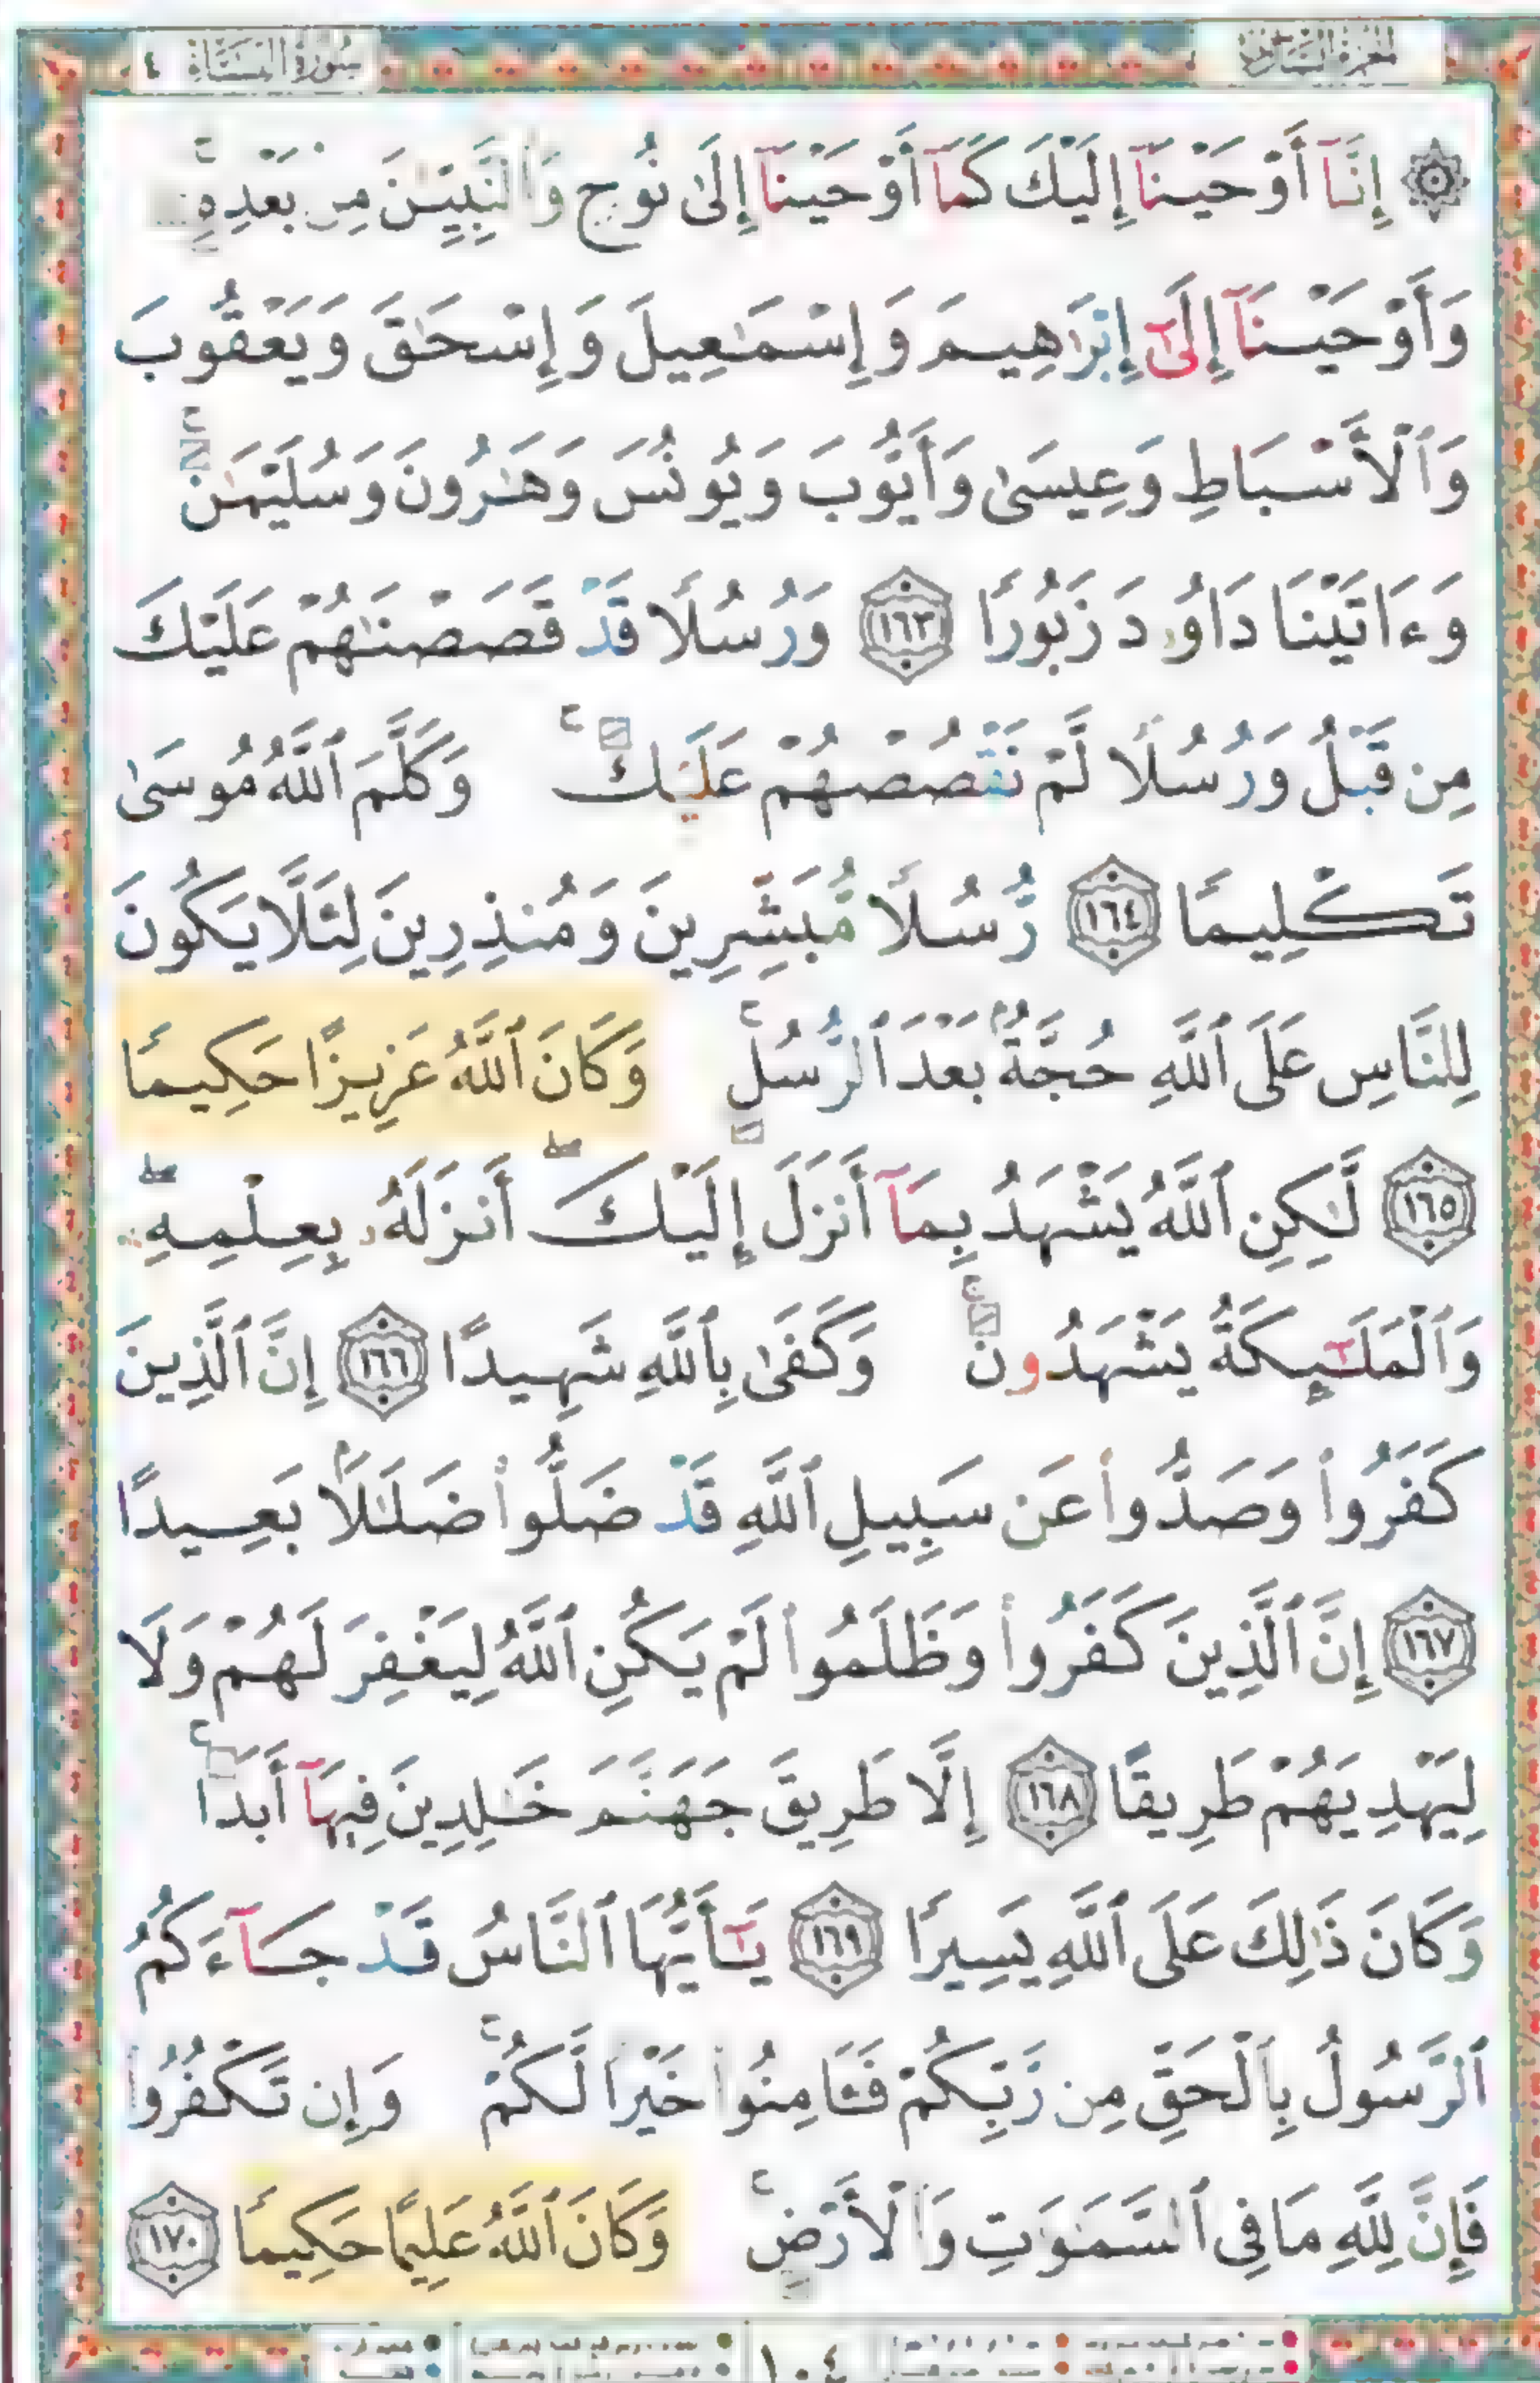 سُورَةُ النِّسَاءِ ٤
۞ إِنَّآ أَوْحَيْنَآ إِلَيْكَ كَمَآ أَوْحَيْنَآ إِلَىٰ نُوحٍ وَٱلنَّبِيِّـۧنَ مِنۢ بَعْدِهِۦ ۚ
وَأَوْحَيْنَآ إِلَىٰٓ إِبْرَٰهِيمَ وَإِسْمَـٰعِيلَ وَإِسْحَـٰقَ وَيَعْقُوبَ
وَٱلْأَسْبَاطِ وَعِيسَىٰ وَأَيُّوبَ وَيُونُسَ وَهَـٰرُونَ وَسُلَيْمَـٰنَ ۚ
وَءَاتَيْنَا دَاوُۥدَ زَبُورًا ١٦٣ وَرُسُلًا قَدْ قَصَصْنَـٰهُمْ عَلَيْكَ
مِن قَبْلُ وَرُسُلًا لَّمْ نَقْصُصْهُمْ عَلَيْكَ ۚ وَكَلَّمَ ٱللَّهُ مُوسَىٰ
تَكْلِيمًا ١٦٤ رُّسُلًا مُّبَشِّرِينَ وَمُنذِرِينَ لِئَلَّا يَكُونَ
لِلنَّاسِ عَلَى ٱللَّهِ حُجَّةٌۢ بَعْدَ ٱلرُّسُلِ ۚ وَكَانَ ٱللَّهُ عَزِيزًا حَكِيمًا
١٦٥ لَّـٰكِنِ ٱللَّهُ يَشْهَدُ بِمَآ أَنزَلَ إِلَيْكَ ۖ أَنزَلَهُۥ بِعِلْمِهِۦ ۖ
وَٱلْمَلَـٰٓئِكَةُ يَشْهَدُونَ ۚ وَكَفَىٰ بِٱللَّهِ شَهِيدًا ١٦٦ إِنَّ ٱلَّذِينَ
كَفَرُوا۟ وَصَدُّوا۟ عَن سَبِيلِ ٱللَّهِ قَدْ ضَلُّوا۟ ضَلَـٰلًۢا بَعِيدًا
١٦٧ إِنَّ ٱلَّذِينَ كَفَرُوا۟ وَظَلَمُوا۟ لَمْ يَكُنِ ٱللَّهُ لِيَغْفِرَ لَهُمْ وَلَا
لِيَهْدِيَهُمْ طَرِيقًا ١٦٨ إِلَّا طَرِيقَ جَهَنَّمَ خَـٰلِدِينَ فِيهَآ أَبَدًا ۚ
وَكَانَ ذَٰلِكَ عَلَى ٱللَّهِ يَسِيرًا ١٦٩ يَـٰٓأَيُّهَا ٱلنَّاسُ قَدْ جَآءَكُمُ
ٱلرَّسُولُ بِٱلْحَقِّ مِن رَّبِّكُمْ فَـَٔامِنُوا۟ خَيْرًا لَّكُمْ ۚ وَإِن تَكْفُرُوا۟
فَإِنَّ لِلَّهِ مَا فِى ٱلسَّمَـٰوَٰتِ وَٱلْأَرْضِ ۚ وَكَانَ ٱللَّهُ عَلِيمًا حَكِيمًا ١٧٠
١٠٤